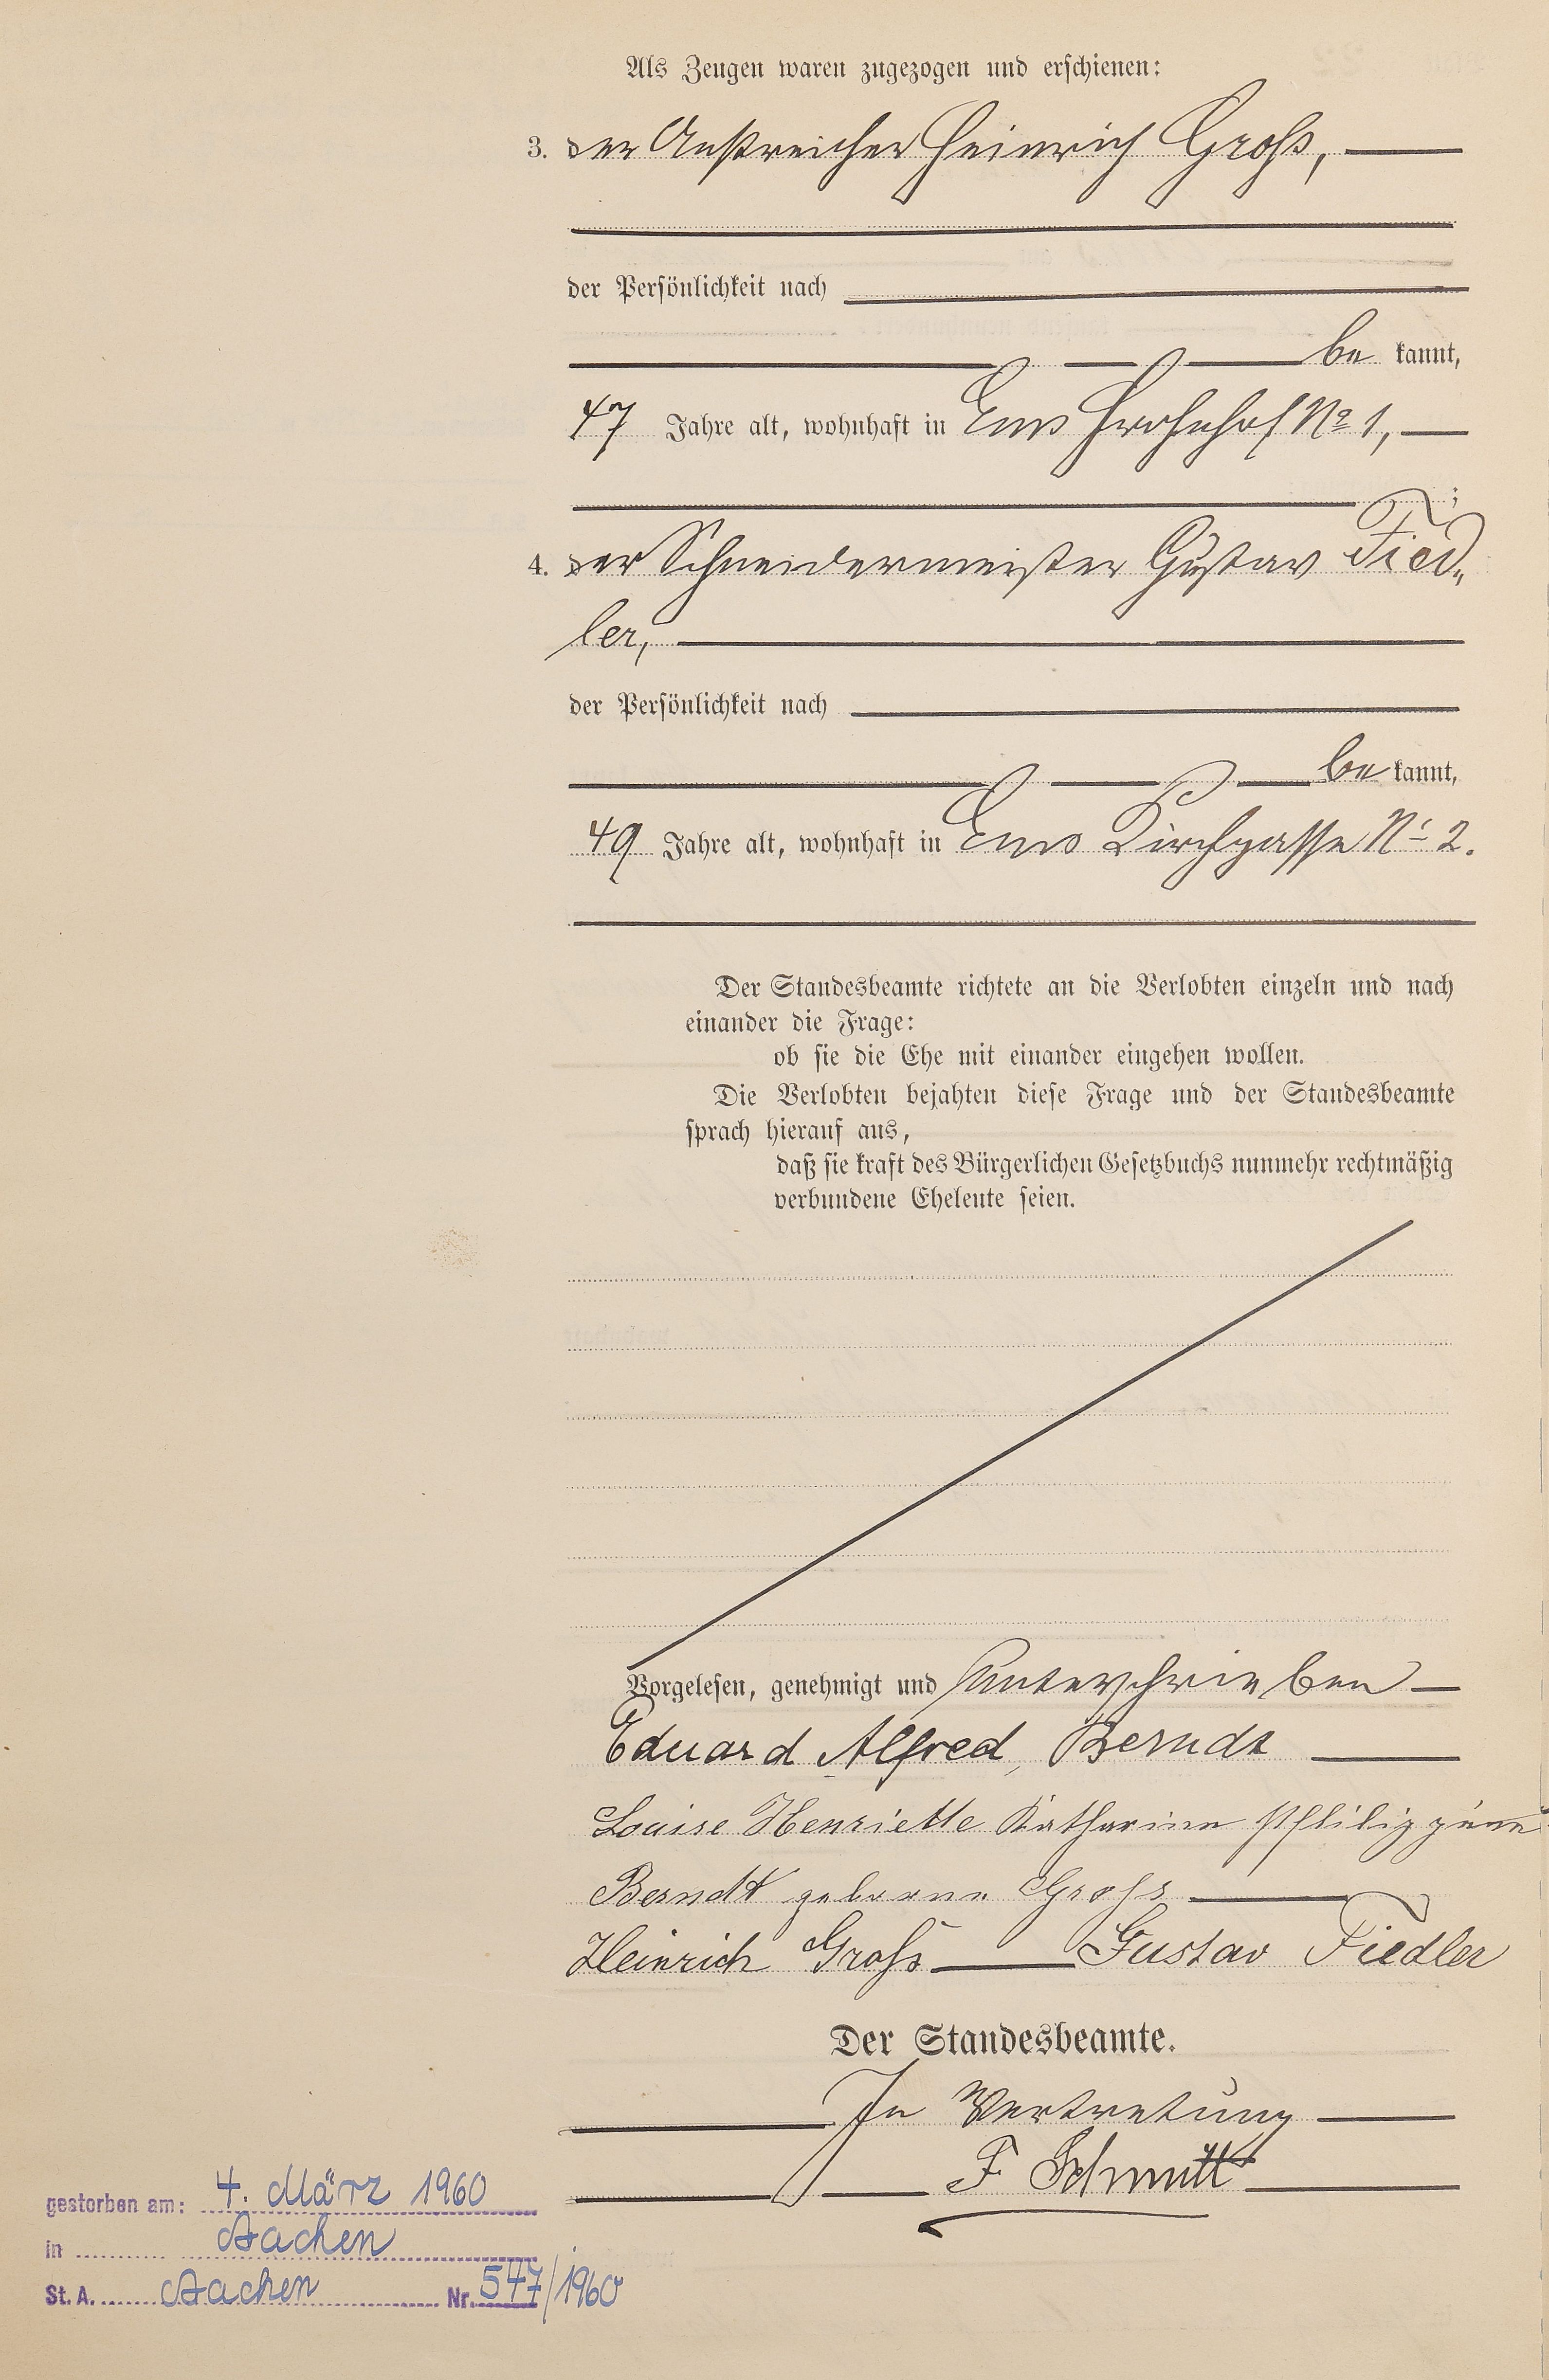 Als Zeugen waren zugezogen und erschienen:
3. der Anstreicher Heinrich Groß,
der Persönlichkeit nach
be kannt,
47 Jahre alt, wohnhaft in Ems Frohnhof No 1,
;
4. der Schneidermeister Gustav Fied„
ler,
der Persönlichkeit nach
be kannt,
49 Jahre alt, wohnhaft in Ems Kirchgasse No 2.
Der Standesbeamte richtete an die Verlobten einzeln und nach
einander die Frage:
ob sie die Ehe mit einander eingehen wollen.
Die Verlobten bejahten diese Frage und der Standesbeamte
sprach hierauf aus,
daß sie kraft des Bürgerlichen Gesetzbuchs nunmehr rechtmäßig
verbundene Eheleute seien.
Vorgelesen, genehmigt und unterschrieben
Eduard Alfred, Berndt
Louise Henriette Katharina Philippine
Berndt geborene Groß
Heinrich Groß Gustav Fiedler
Der Standesbeamte.
In Vertretung
F Schmitt
gestorben am: 4. März 1960
in Aachen
St. A. Aachen Nr. 547/1960